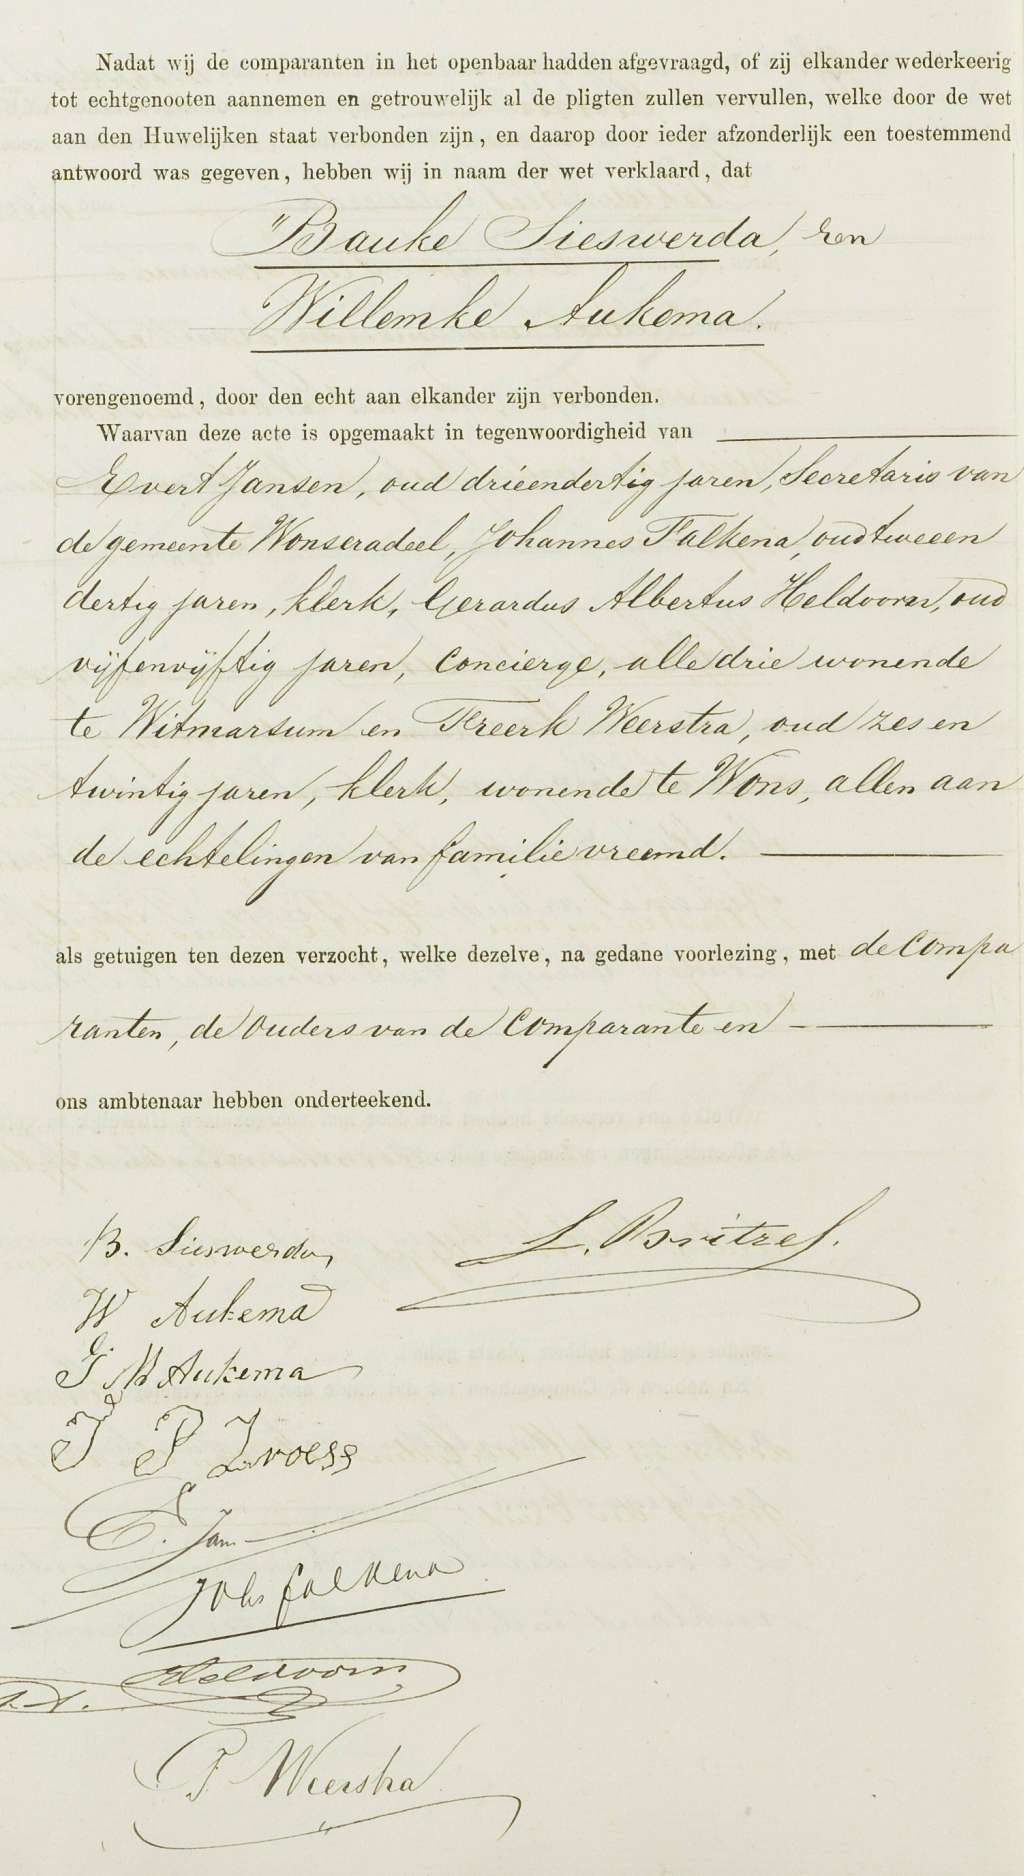 Nadat wij de comparanten in het openbaar hadden afgevraagd, of zij elkander wederkeerig
tot echtgenooten aannemen en getrouwelijk al de pligten zullen vervullen, welke door de wet
aan den Huwelijken staat verbonden zijn, en daarop door ieder afzonderlijk een toestemmend
antwoord was gegeven, hebben wij in naam der wet verklaard, dat
Bauke Sieswerda, en
Willemke Aukema.
vorengenoemd, door den echt aan elkander zijn verbonden.
Waarvan deze acte is opgemaakt in tegenwoordigheid van
Evert Jansen, oud drieendertig jaren, Secretaris van
de gemeente Wonseradeel, Johannes Falkena, oud tweeen
dertig jaren, klerk, Gerardus Albertus Heldoorn, oud
vijfenvijftig jaren, Concierge, alle drie wonende
te Witmarsum en Freerk Weerstra, oud zes en
twintig jaren, klerk, wonende te Wons, allen aan
de echtelingen van familie vreemd.
als getuigen ten dezen verzocht, welke dezelve, na gedane voorlezing, met de Compa
ranten, de Ouders van de Comparante en
ons ambtenaar hebben onderteekend.
B. Sieswerda
L. Britzel.
W Aukema
G. M Aukema
J P Zroess
E. Jan
Johs Falkena
Heldoorn
F Weerstra